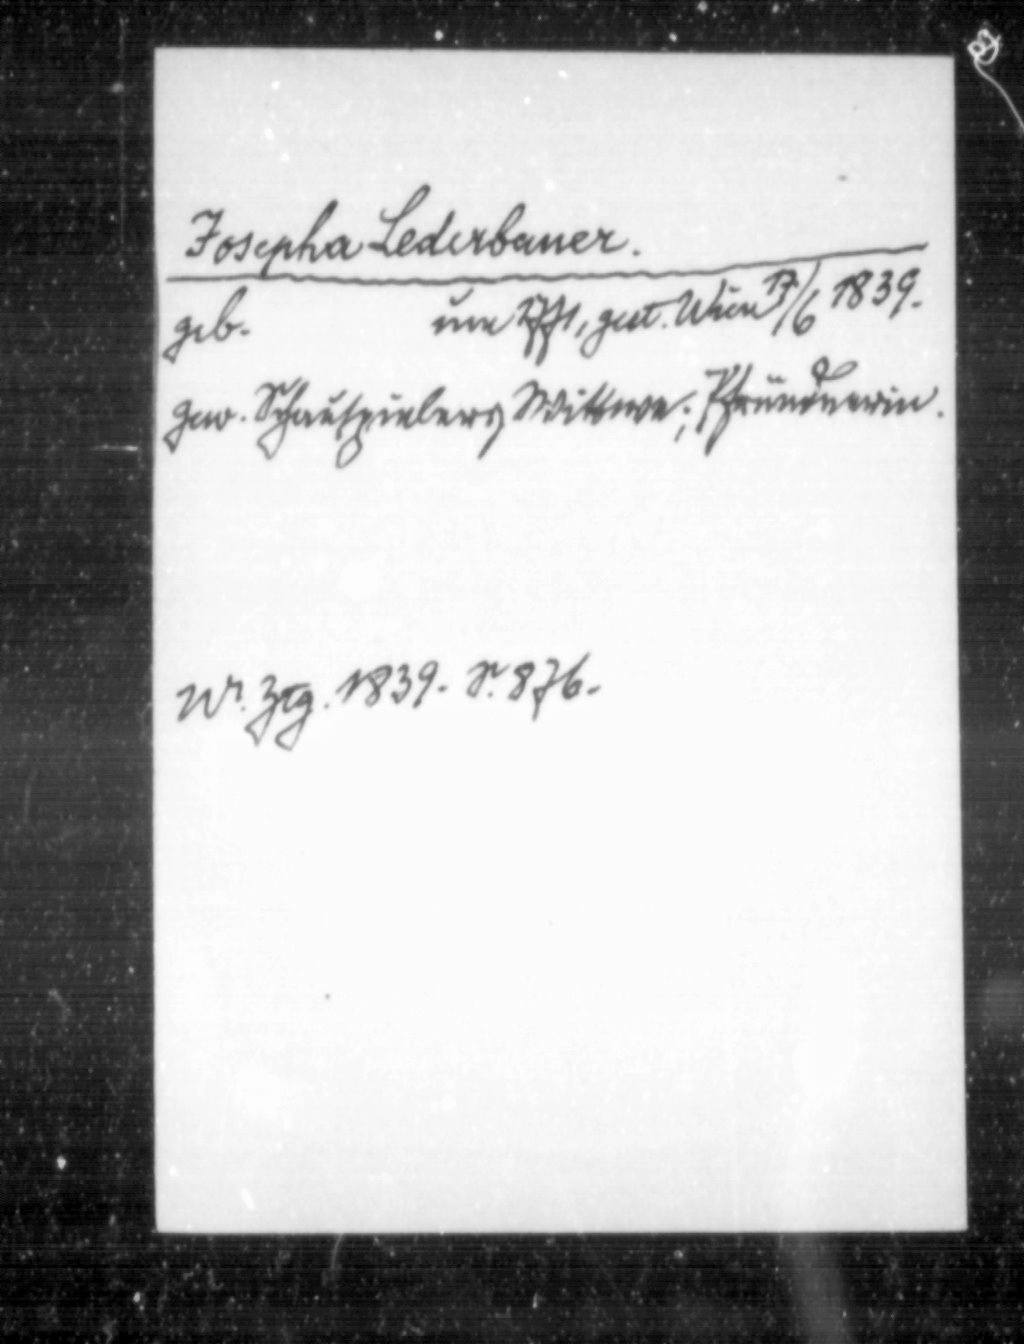 Josepha Lederbauer.
geb. um 1771, gest. Wien 17/6 1839.
gew. Schauspielers Wittwe; Pfründnerin.
Wr. Ztg. 1839. S. 876.